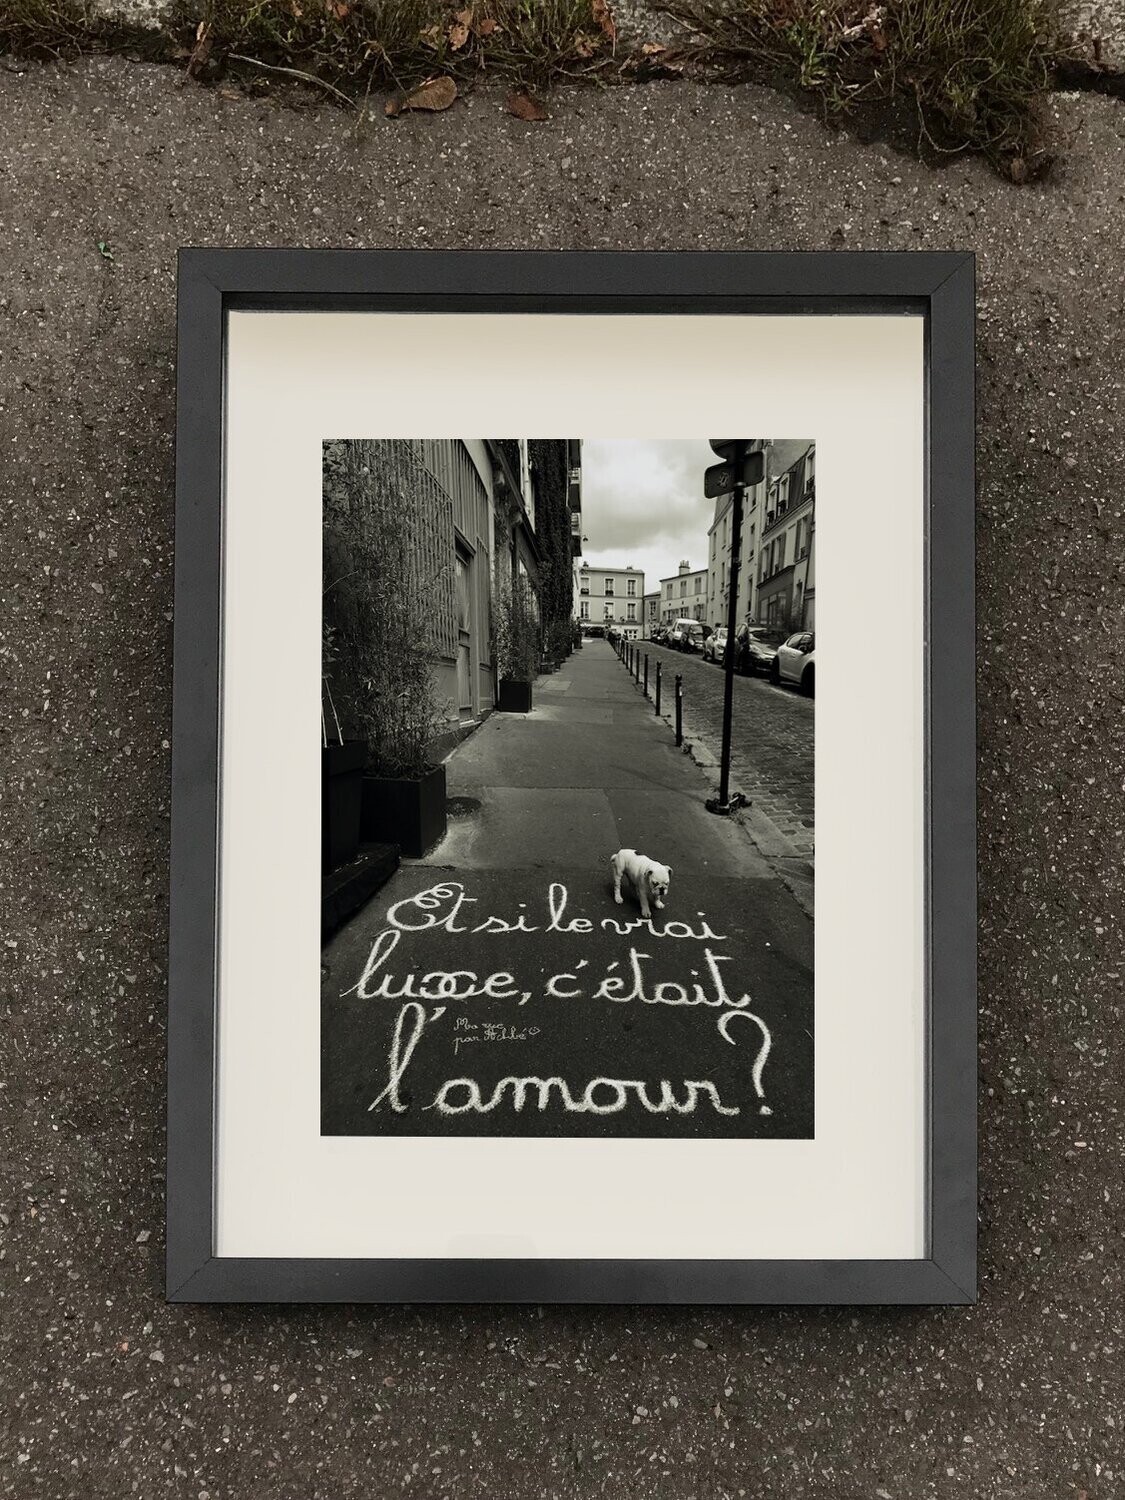 Et si le vrai
luxe, c'était
l'amour?
Ma rue
par Achbé